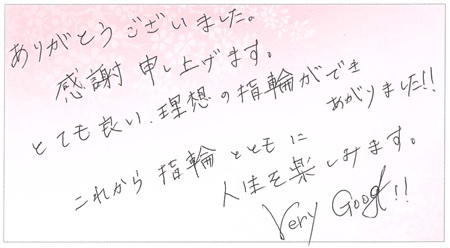 ありがとうございました。
感謝申し上げます。
とても良い、理想の指輪ができ
あがりました!!
これから指輪とともに
人生を楽しみます。
Very Good!!